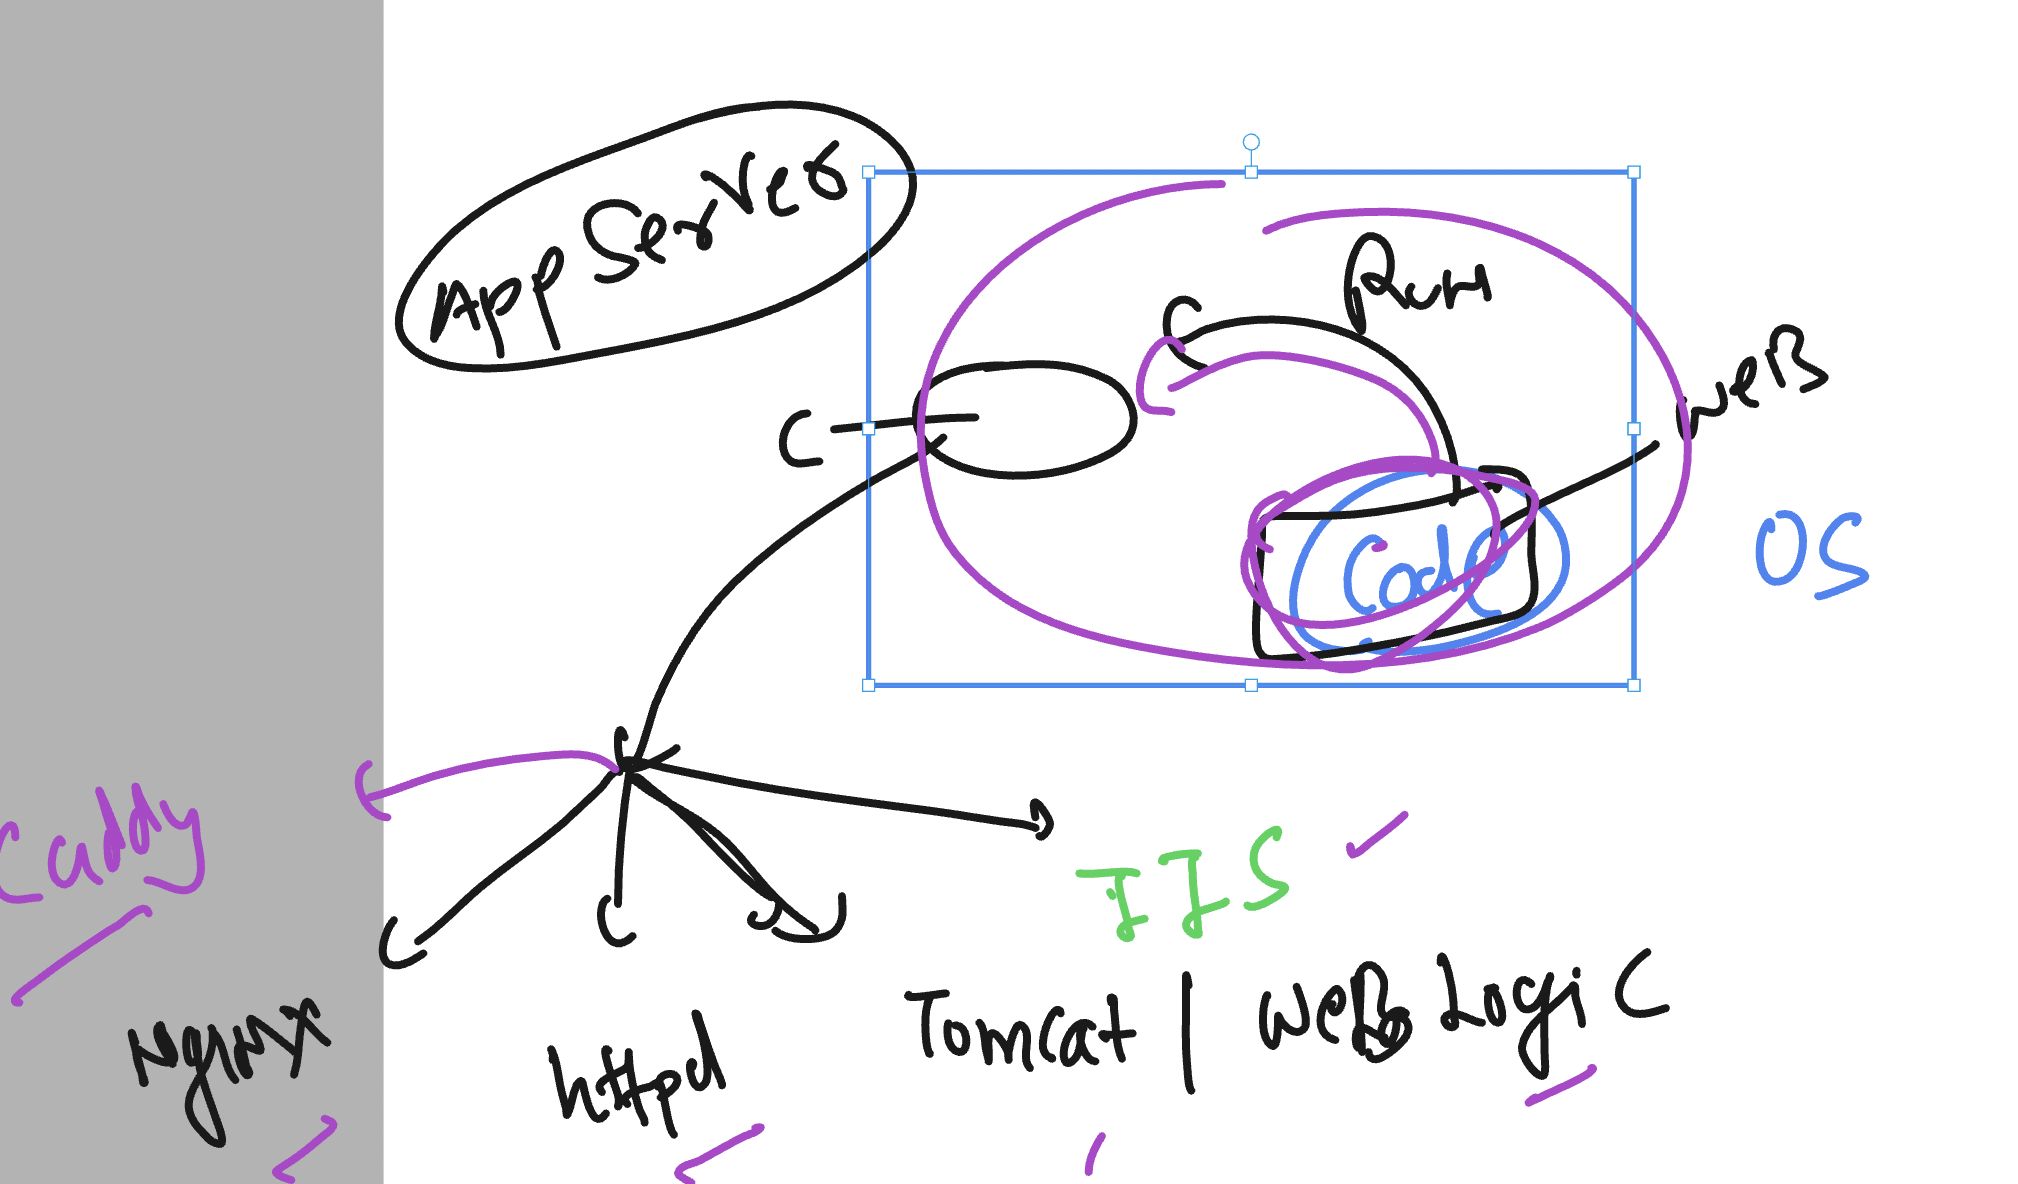 App Server
Run
WeB
Code
OS
Caddy
IIS
Nginx
httpd
Tomcat | WeB Logic